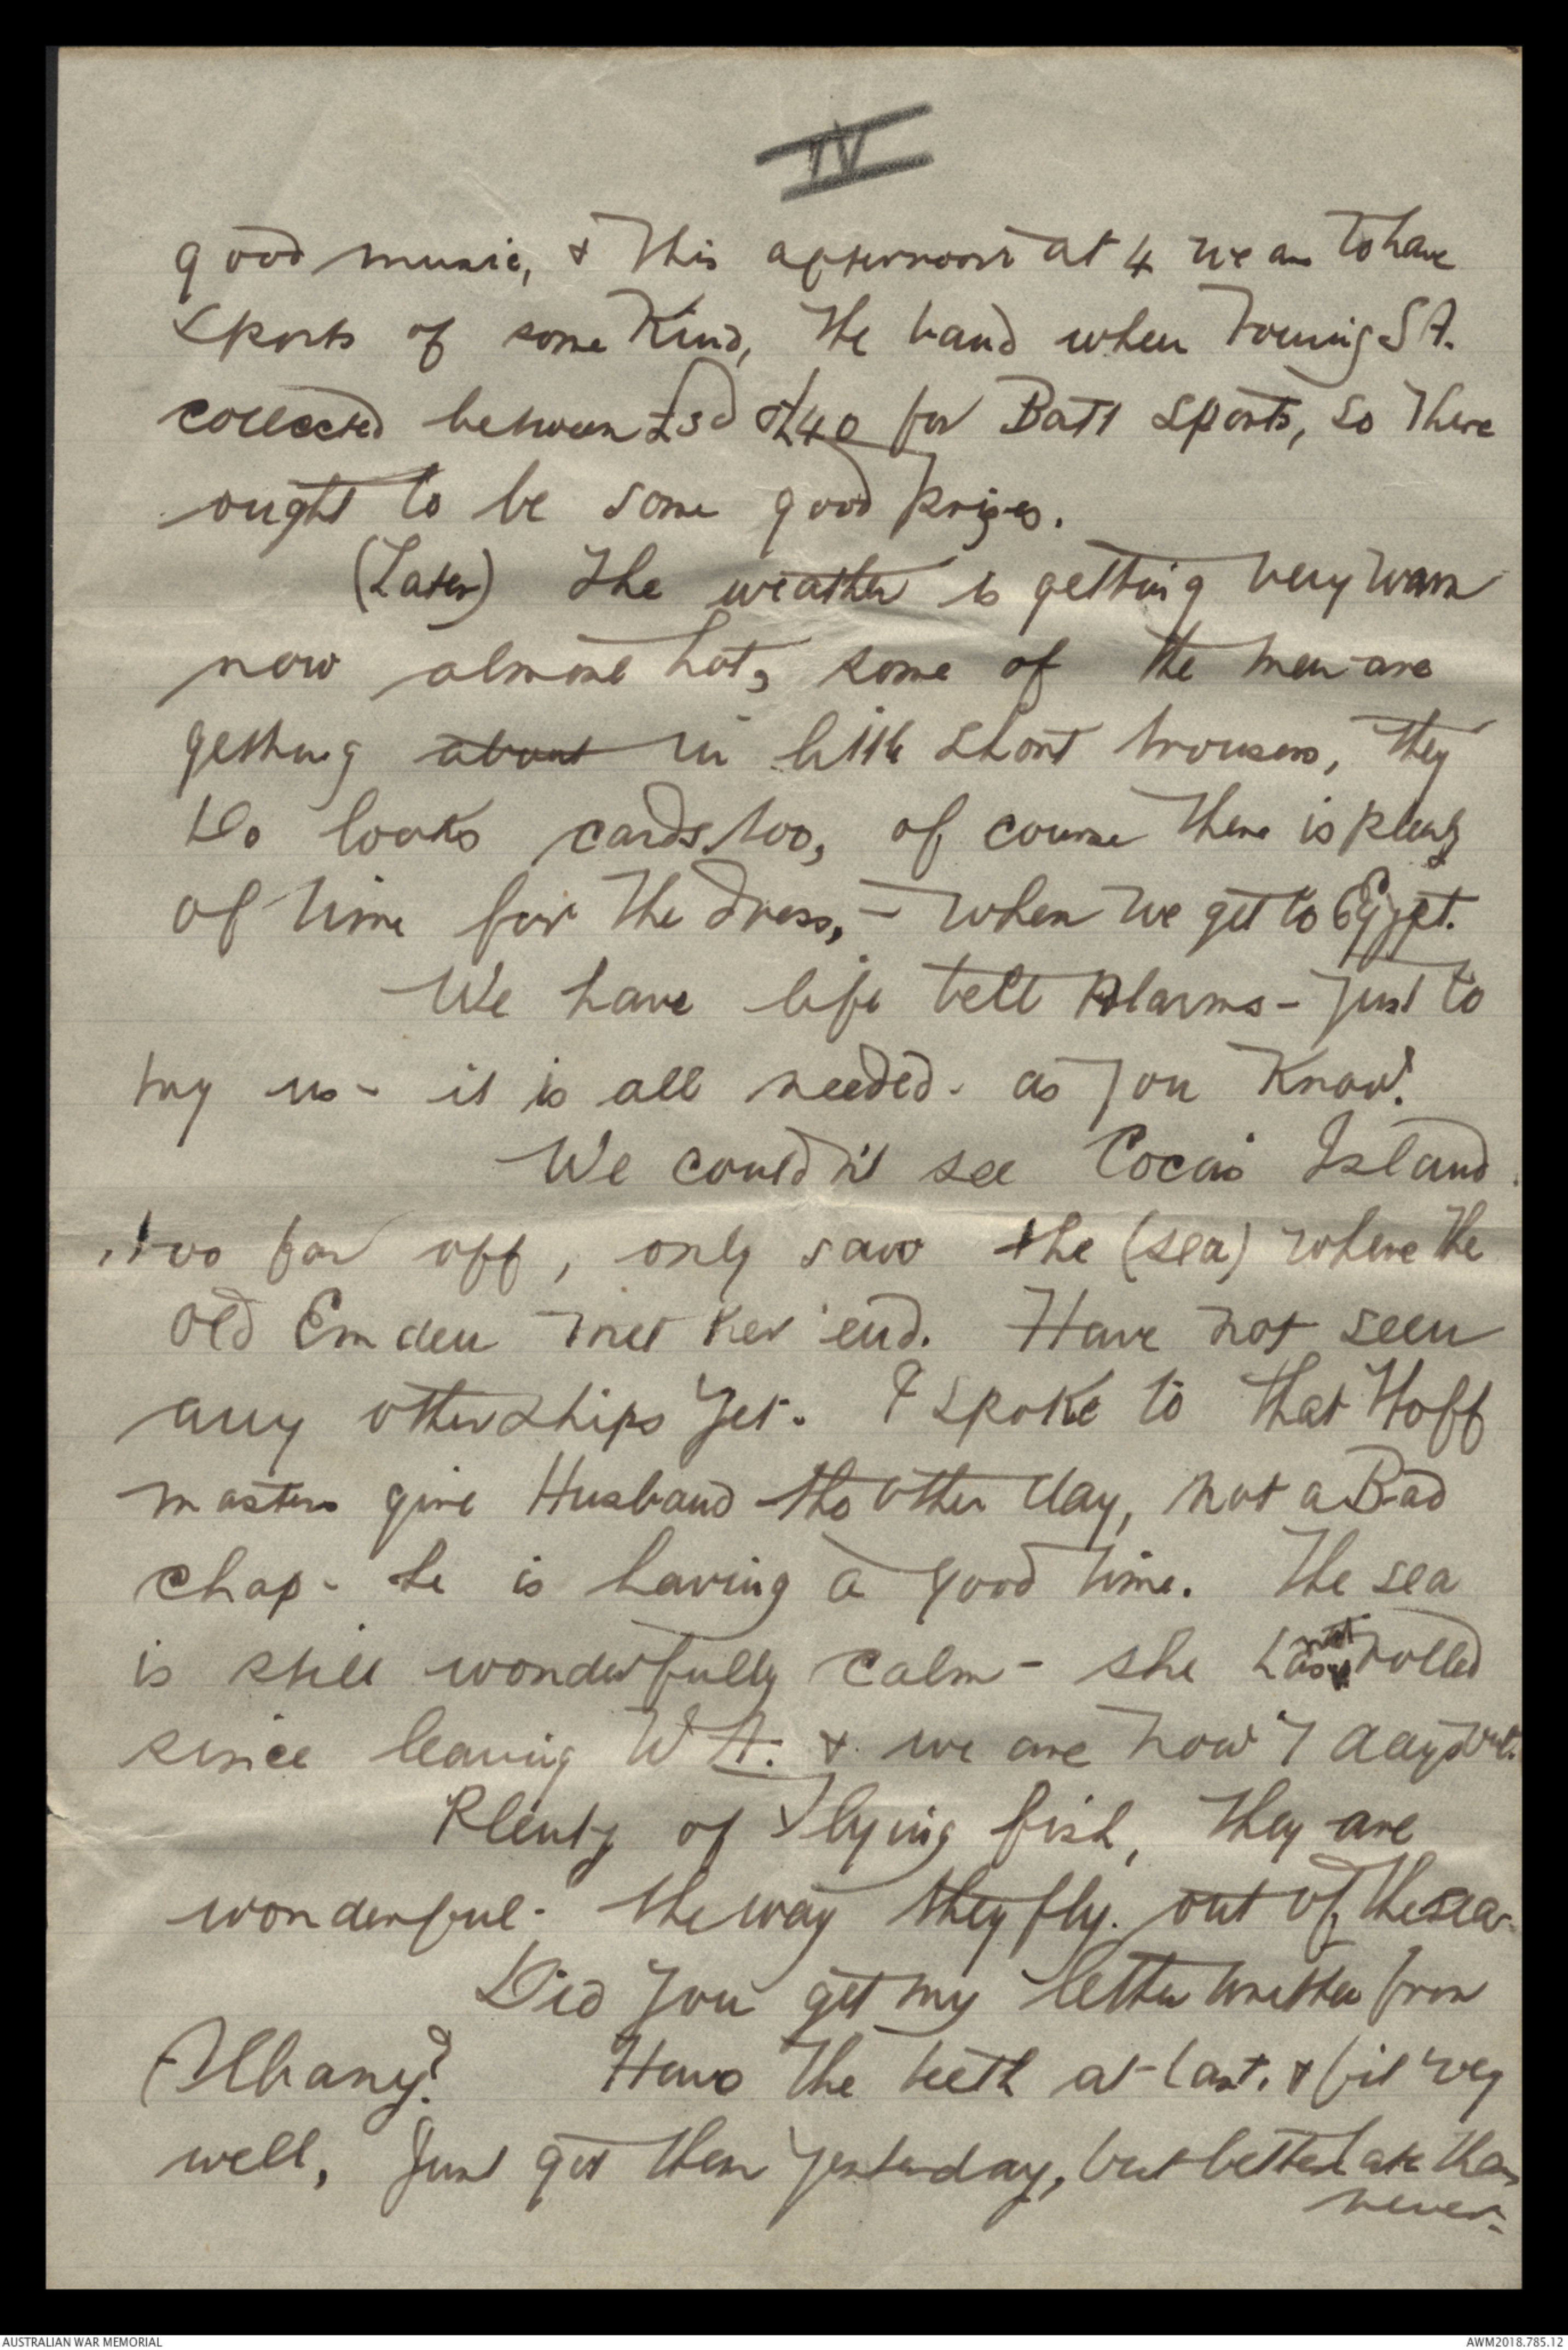 IV
good music, & this afternoon at 4 we are to have
sports of some kind, the band when touring S A.
collected between £30 & £40 for Batt sports, so there
ought to be some good prizes.
(Later) The weather is getting very warm
now almost hot, some of the men are
getting about in little short trousers, they
do look cards too, of course there is plenty
of time for the dress, - when we get to Egypt.
We have life belt Alarms - just to
try us - it is all needed - as you know!
We couldn't see Cocas Island
too far off, only saw the (sea) where the
old Emden met her end. Have not seen
any other ships yet. I spoke to that Hoff
masters Husband the other day, not a Bad
chap - he is having a good time. The sea
is still wonderfully calm - she has not rolled
since leaving W A. & we are now 7 days out.
Plenty of flying fish, they are
wonderful - the way they fly. out of the sea -
Did you get my letter written from
Albany? Have the teeth at last. & fit very
well, Just got them yesterday, but better late than
never -
AUSTRALIAN WAR MEMORIAL
AWM2018.785.12